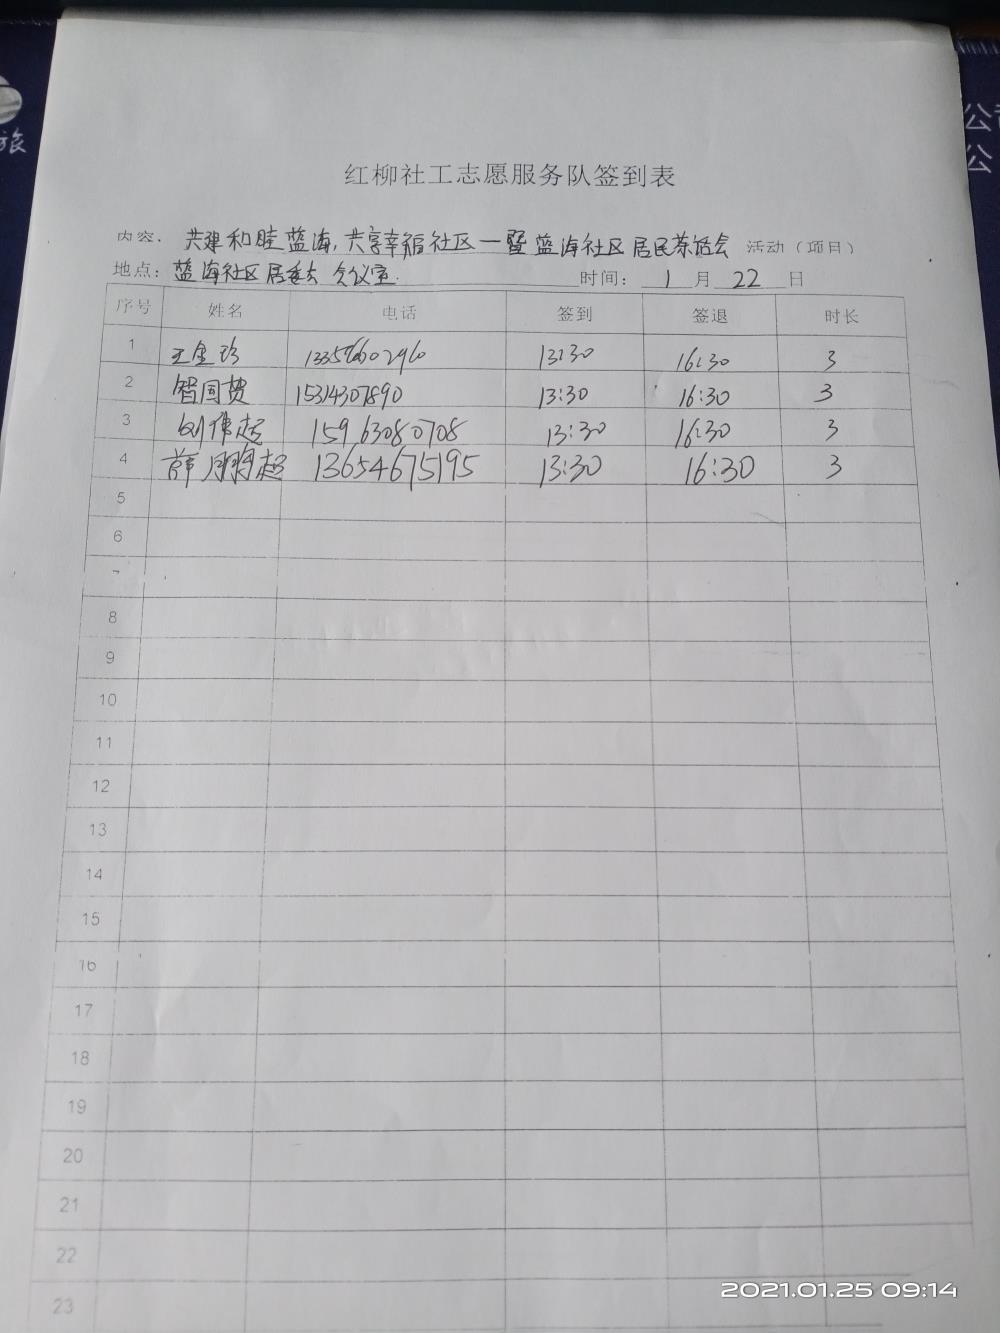 旅
公司
公
红柳社工志愿服务队签到表
内容: 共建和睦蓝海,共享幸福社区—暨蓝海社区居民茶话会 活动(项目)
地点: 蓝海社区居委会 会议室. 时间: 1 月 22 日
序号 姓名 电话 签到 签退 时长
1 王金珍 13:30 16:30 3
2 智国贵 15314307890 13:30 16:30 3
3 刘伟超 15963080708 13:30 16:30 3
4 薛鹏超 13654675195 13:30 16:30 3
5
6
7
8
9
10
11
12
13
14
15
16
17
18
19
20
21
22
23
2021.01.25 09:14